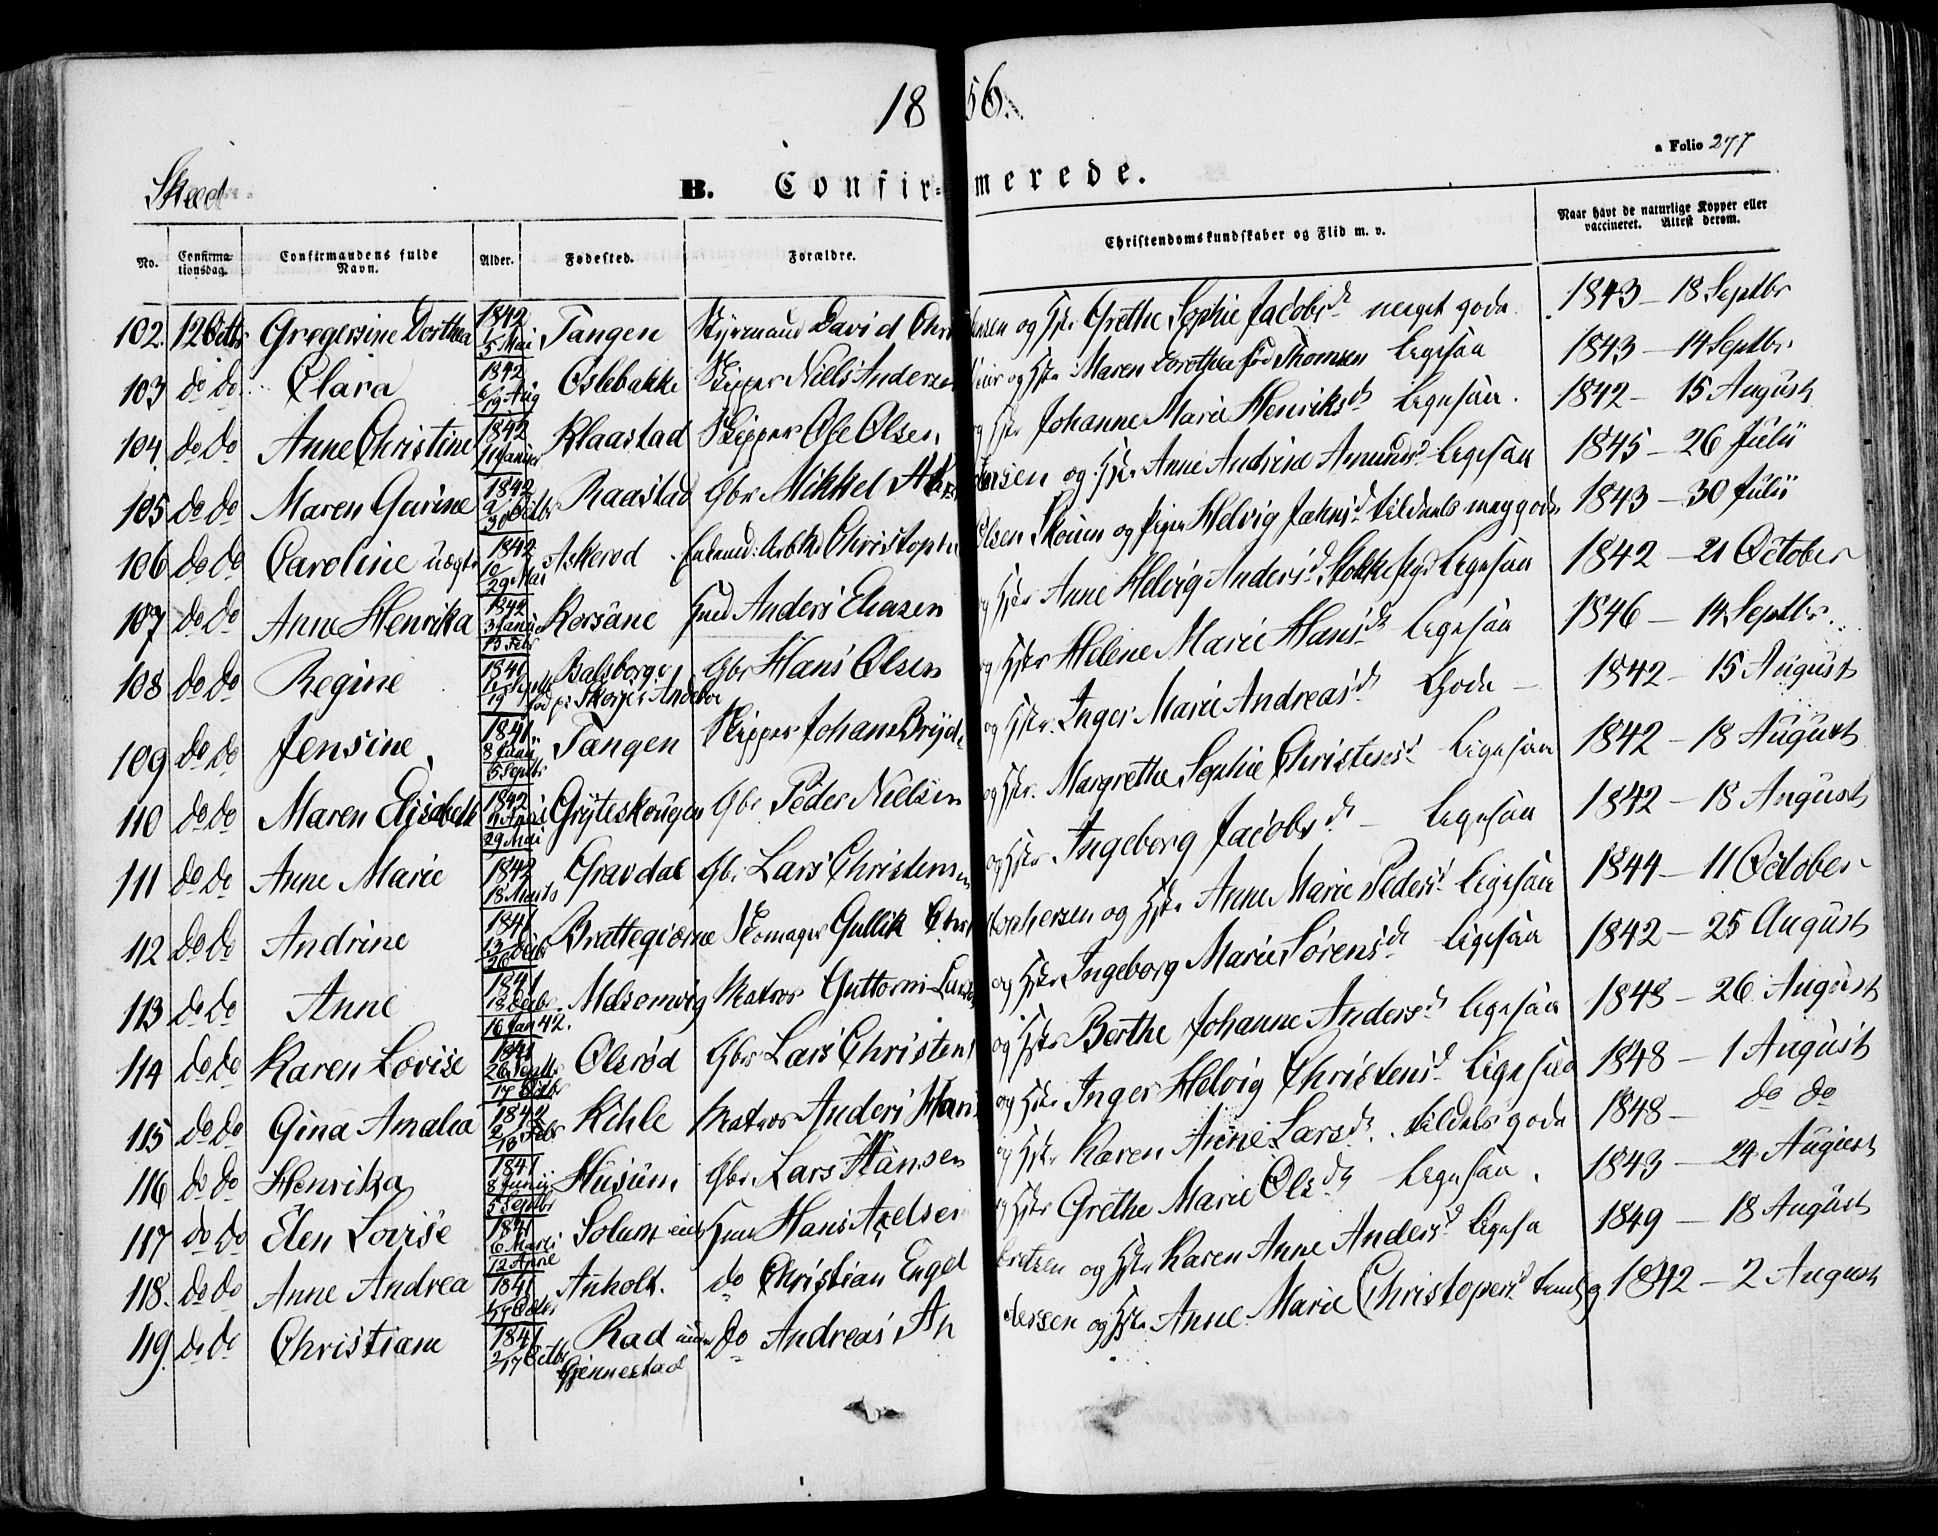 1856.
a Folio 277
Skæd
B. Confirmerede.
No. Confirmationsdag. Confirmandens fulde Navn. Alder. Fødested. Forældre. Christendomskundskaber og Flid m. v. Naar havt de naturlige Kopper eller vaccineret. Attest derom.
102. 12 Octbr Gregersine Dorthea 1842 5 Mai Tangen Styrmand David Chr ensen og Hstr Grethe Sophie Jacobsd meget gode 1843 – 18 Septbr
103 do do Clara 1842 6/19 Aug Oslebakke Skipper Niels Andersen og Hstr Maren Dorothea fød Thomsen ligesaa 1843 – 14 Septbr
104. do do Anne Christine 1842 Januar Klaastad Skipper Ole Olsen og Hstr Johanne Marie Henriksd ligesaa. 1842 – 15 August
105 do do Maren Gurine 1842 2/30 Octbr Raastad Gbr Mikkel og Hstr Anne Andrine Amundsd ligesaa 1845 – 26 Julii
106 do do Caroline uægte 1842 10/29 Mai Askerød Arbk Christopher Olsen Skoum og Pigen Helvig Jahnsd tildeels meg gode 1843 – 30 Julii
107 do do Anne Henrika 1842 3 Januar 13 Febr Korsåne Hmd Anders Eliasen og Hstr Anne Helvig Andersd ligesaa 1842 – 21 October
108 do do Regine 1841 19 Septbr Balsberg fød p: Skorge i Andebu Gbr Hans Olsen og Hstr Helene Marie Hansd ligesaa 1846 – 14 Septbr.
109 do do Jensine 1841 8 Juni 5 Septbr Tangen Skipper Johan Bryde og Hstr. Inger Marie Andreasd Gode – 1842 – 15 August
110 do do Maren Elisabeth 1842 11 April 29 Mai Gryteskougen Gbr Peder Nielsen og Hstr. Margrethe Sophie Christensd ligesaa 1842 – 18 August
111 do do Anne Marie 1842 18 Marts Gravdal Gbr Lars Christensen og Hstr Ingeborg Jacobsd – ligesaa 1842 – 18 August
112 do do Andrine 1841 13/26 Decbr Brattegjerne Skomager Gullik Christophersen og Hstr Anne Marie Pedersd ligesaa 1844 – 11 October
113 do do Anne 1841 18 Decbr 16 Jan 42. Melsomvig Matros Guttorm Larsen og Hstr Ingeborg Marie Sørensd ligesaa 1842 – 25 August
114 do do Karen Lovise 1841 26 Septbr 17 Octbr Olsrød Gbr Lars Christens og Hstr Berthe Johanne Andersd ligesaa 1848 – 26 August
115 do do Gina Amalia 1842 2/13 Febr Kihle Matros Anders Hans og Hstr Inger Helvig Christensd ligesaa 1848 – 1 August
116 do do Henrika 1841 8 Juni 5 Septbr Husum Gbr Lars Hansen og Hstr Karen Anne Larsd. tildels gode 1848 – do do
117 do do Elen Lovise 1841 6 Marts 12 April Solum Hmd Hans Axelsen og Hstr Grethe Marie Olsd ligesaa. 1843 – 24 August
118. do do Anne Andrea 1841 17 Octbr Anholt. do Christian Engelbretsen og Hstr Karen Anne Andersd ligesaa 1849 – 18 August
119. do do Christiane 1841 2/17 Octbr Rad under Gjennestad do Andreas Andersen og Hstr Anne Marie Christopersd 1842 – 2 August